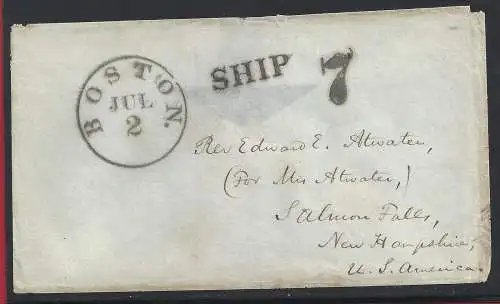 BOSTON.
JUL
2
SHIP 7
Rev Edward E. Atwater,
(For Mrs Atwater,)
Salmon Falls,
New Hampshire,
U. S. America